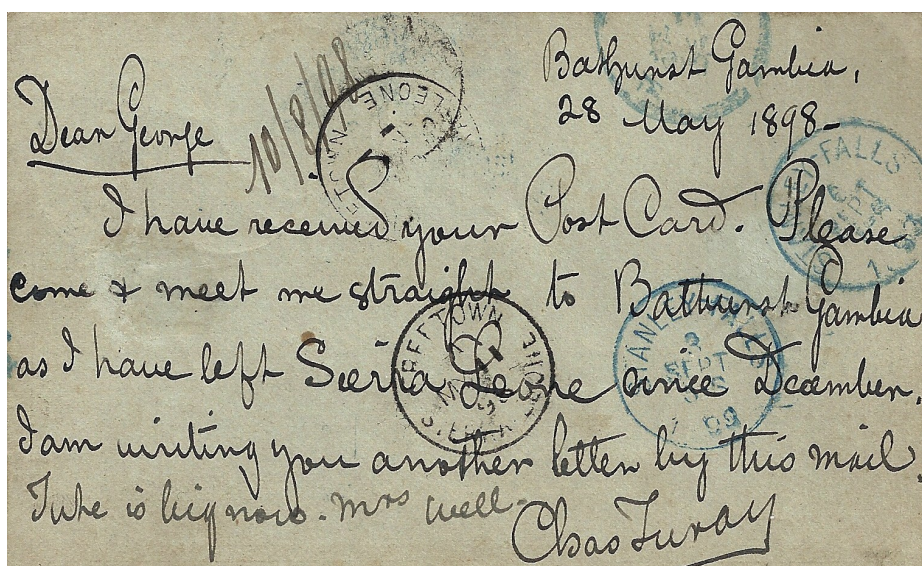 Bathurst Gambia,
28 May 1898-
10/8/98
Dear George
I have received your Post Card. Please
come & meet me straight to Bathurst Gambia
as I have left Sierra Leone since December.
I am writing you another letter by this mail
is big now. Mrs well.
Chas Turay
LEONE
FALLS
FREETOWN
SIERRA LEONE
STANLEY
2
SEPT
98